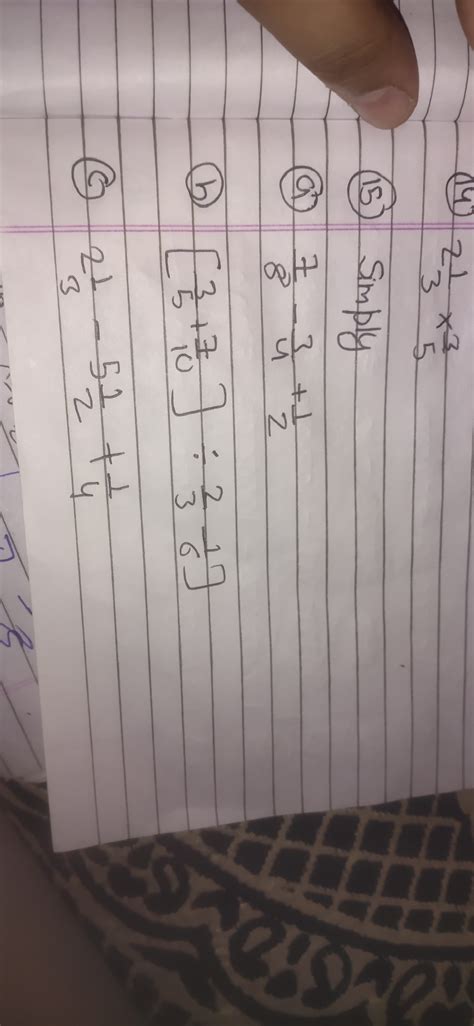 14 2 1/3 × 3/5
15 Simply
a 7/8 - 3/4 + 1/2
b [3/5 + 7/10] ÷ 2/3 - 1/6]
c 2 1/3 - 5 1/2 + 1/4